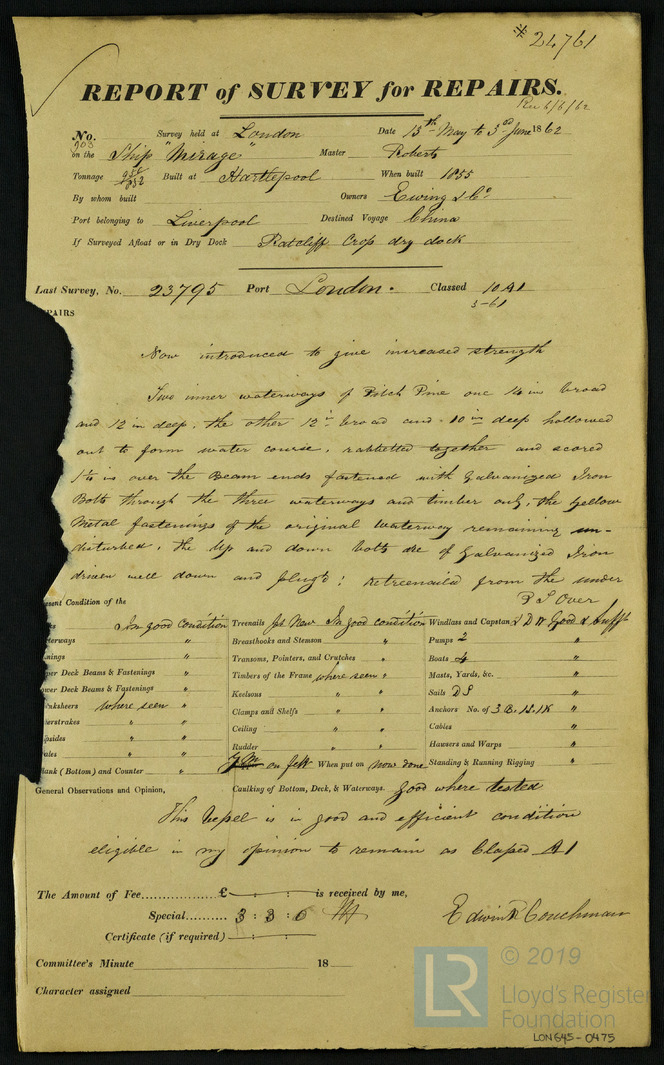 * 24761
REPORT of SURVEY for REPAIRS.
Rec 6/6/62
No. 903 Survey held at London Date 13th May to 3rd June 1862
on the Ship "Mirage" Master Roberts
Tonnage Built at Hartlepool When built 1855
By whom built Owners Ewing & Co
Port belonging to Liverpool Destined Voyage China
If Surveyed Afloat or in Dry Dock Ratcliff Cross dry dock
Last Survey, No. 23795 Port London. Classed 10 A1
5-61
PAIRS
Now introduced to give increased strength
Two inner waterways of Pitch Pine one 14 ins broad
and 12 in deep, the other 12 in broad and 10 in deep hollowed
out to form water course, rabbetted together and scored
1¼ in over the Beam ends fastened with Galvanized Iron
Bolts through the three waterways and timber only, the yellow
Metal fastenings of the original waterway remaining un-
disturbed, the up and down bolts are of Galvanized Iron
driven well down and plug'd; retreenailed from the under
P T Over
esent Condition of the
ks In good condition Treenails pt New In good condition Windlass and Capstan 2 D W Good & sufft
terways " Breasthooks and Stemson " Pumps 2 "
nings " Transoms, Pointers, and Crutches " Boats 4 "
per Deck Beams & Fastenings " Timbers of the Frame where seen " Masts, Yards, &c. "
ower Deck Beams & Fastenings " Keelsons " " Sails D S "
nksheers where seen " Clamps and Shelfs " " Anchors No. of 3 B. 1S. 1K "
erstrakes " " Ceiling " " Cables "
psides " " Rudder " " Hawsers and Warps "
ales " " Y M on felt When put on now done Standing & Running Rigging "
lank (Bottom) and Counter "
General Observations and Opinion, Caulking of Bottom, Deck, & Waterways. Good where tested
This Vessel is in good and efficient condition
eligible in my opinion to remain as Classed A1
The Amount of Fee.................£ — : — : — is received by me,
Special.......... 3 : 3 : 0
Edwin Couchman
Certificate (if required) — : — : —
Committee's Minute 18
Character assigned
LR
© 2019
Lloyd's Register
Foundation
LON645-0475